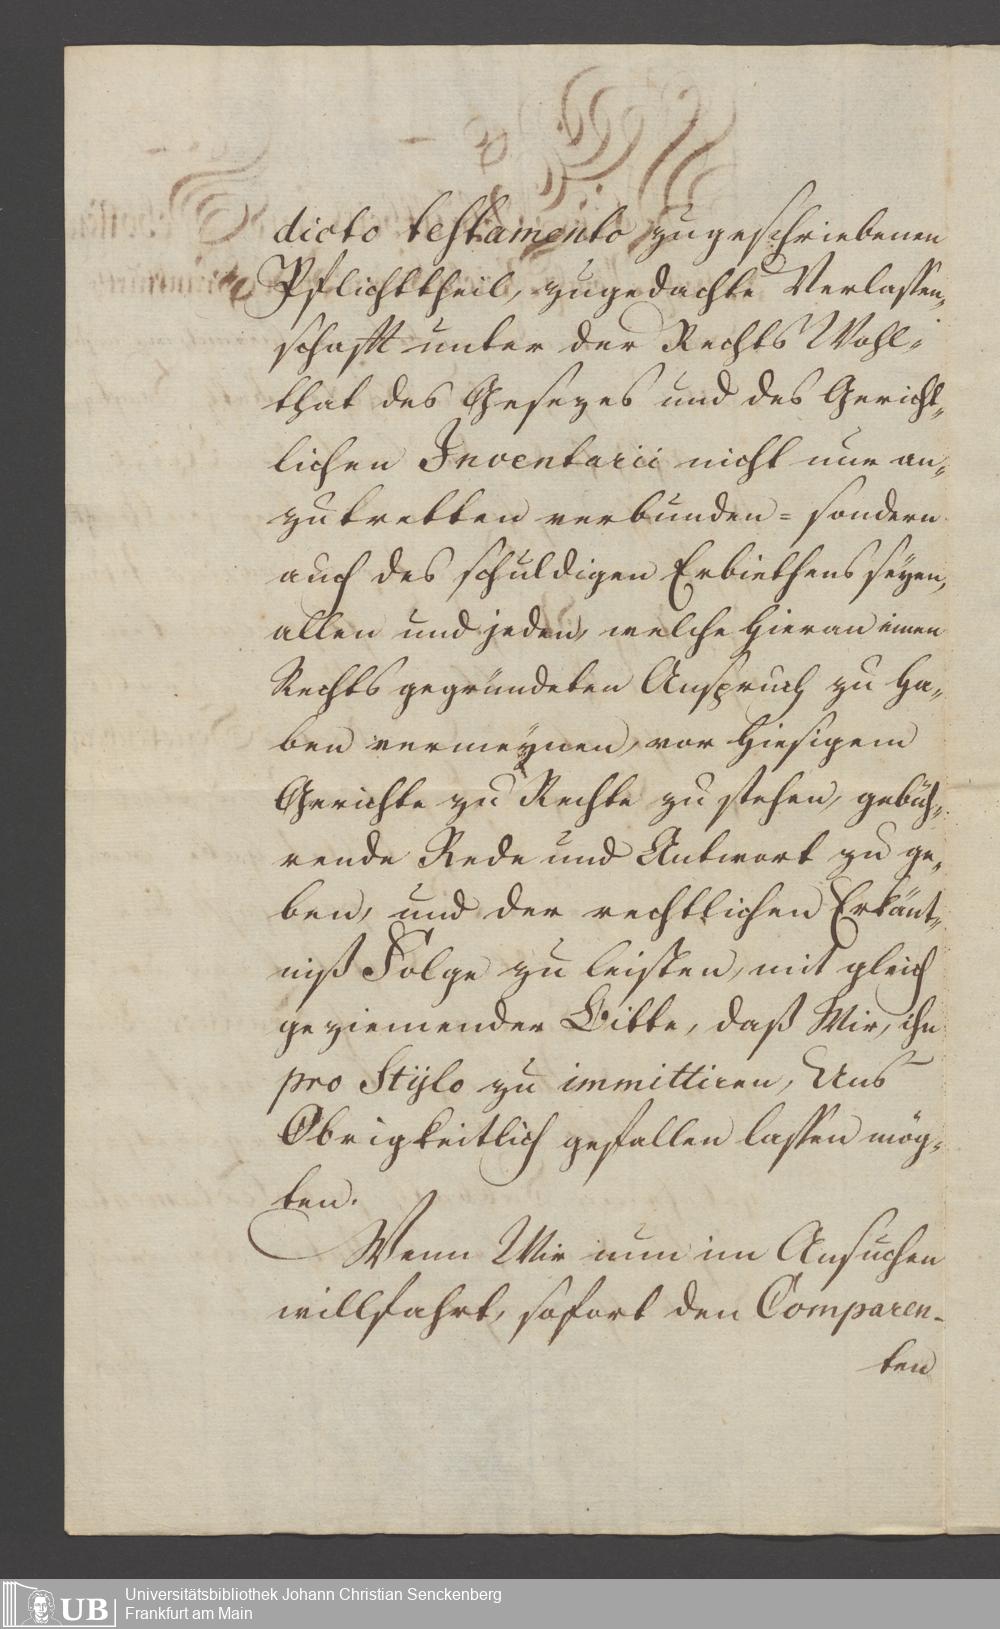 dicto testamento zugeschriebenen
Pflichttheil, zugedachte Verlassen-
schafft unter der Rechts Wohl-
that des Gesezes und des Gericht-
lichen Inventarii nicht nur an-
zutretten verbunden = sondern
auch des schuldigen Erbiethens seyen,
allen und jeden, welche hieran einen
Rechts gegründeten Anspruch zu ha-
ben vermeynen, vor hiesigem
Gerichte zu Rechte zu stehen, gebüh-
rende Rede und Antwort zu ge-
ben, und der rechtlichen Erkänt-
niß Folge zu leisten, mit gleich
geziemender Bitte, daß Wir, ihn
pro Stylo zu immittiren, Uns
Obrigkeitlich gefallen lassen mög-
ten.
Wenn Wir nun im Ansuchen
willfahrt, sofort den Comparen-
ten
UB
Universitätsbibliothek Johann Christian Senckenberg
Frankfurt am Main